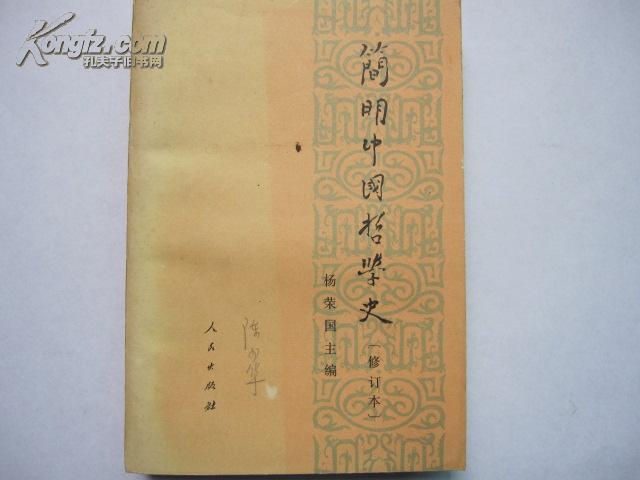 Kongfz.com
孔夫子旧书网
簡明中國哲學史
(修订本)
杨荣国主编
陈少华
人民出版社